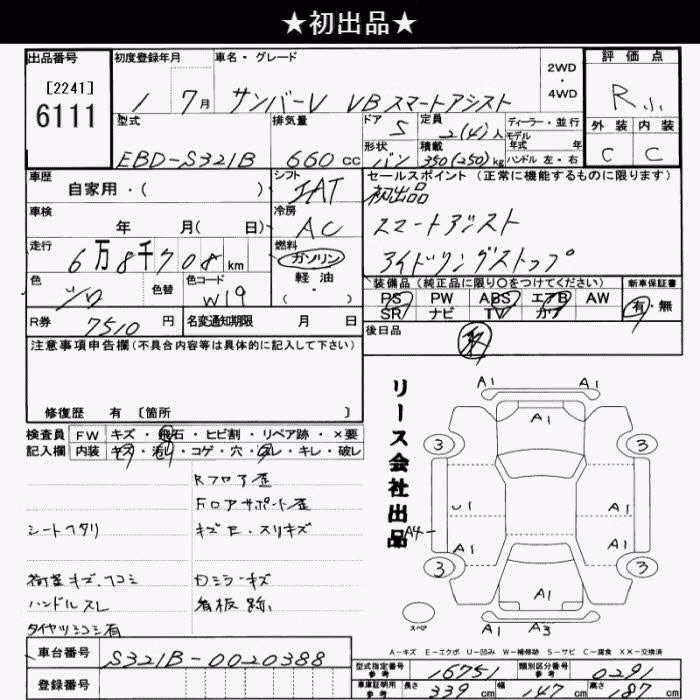 ★初出品★
出品番号 初度登録年月 車名・グレード 2WD・4WD 評価点
[2241]
6111
1 7月 サンバーV VBスマートアシスト R
型式 排気量 ドア 5 定員 2(4)人 ディーラー・並行 外装 内装
モデル年式 年式
EBD-S321B 660cc 形状 バン 積載 350(250)kg ハンドル 左・右 C C
車歴 シフト セールスポイント (正常に機能するものに限ります)
自家用・( ) IAT 初出品
車検 冷房 スマートアシスト
年 月( 日) AC
走行 燃料 アイドリングストップ
6万8千708km ガソリン
軽油
( ・ )
色 シロ 色替 色コード W19 装備品 (純正品に限り○をつけてください) 新車保証書
PS PW ABS エアB AW 有・無
SR ナビ TV カワ
R券 7510円 名変通知期限 月 日 後日品
注意事項申告欄(不具合内容等は具体的に記入して下さい)
修復歴 有 [箇所 ]
検査員 FW キズ・飛石・ヒビ割・リペア跡・×要
記入欄 内装 キズ・汚れ・コゲ・穴・スレ・キレ・破レ
Rフロア歪
フロアサポート歪
シートヘタリ キズE・スリキズ
荷室キズ、凹コミ Dミラーキズ
ハンドルスレ 看板跡
有
リース会社出品
A1 A1
A1
3 3
U1 A1
A4
A1 A1
3 3
A1
スペア A1 A3
A-キズ E-エクボ U-凹み W-補修跡 S-サビ C-腐食 XX-交換済
車台番号 S321B-0020388
登録番号
型式指定番号 参考 16751 類別区分番号 参考 0291
車庫証明用 参考 長さ 339cm 幅 147cm 高さ 187cm